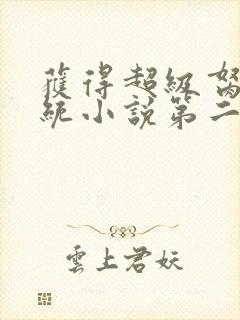 獲得超級
統小說第二
雲上君妖